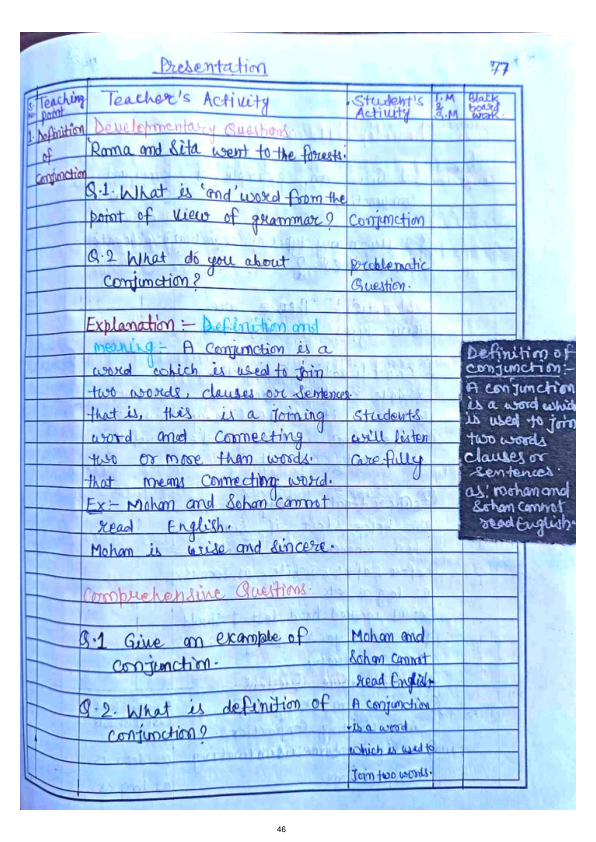 Presentation
77
S. No. Teaching point
Teacher's Activity
Student's Activity
T.M & S.M
Black board work.
1. Definition of Conjunction
Developmentary Questions.
Rama and Sita went to the forests.
Q.1. What is 'and' word from the
point of view of grammar?
Conjunction
Q.2 What do you about
conjunction?
Problematic
Question.
Explanation :- Definition and
meaning:- A Conjunction is a
word which is used to join
two words, clauses or Sentences.
that is, this is a Joining
word and Connecting
two or more than words.
that means Connecting word.
Students
will listen
Carefully
Ex:- Mohan and Sohan Cannot
read English.
Mohan is wise and sincere.
Definition of
conjunction:-
A conjunction
is a word which
is used to join
two words
clauses or
Sentences
as: mohan and
Sohan Cannot
read English.
Comprehensive Questions.
Q.1 Give an example of
conjunction.
Mohan and
Sohan Cannot
read English.
Q.2. What is definition of
conjunction?
A conjunction
is a word
which is used to
Join two words.
46